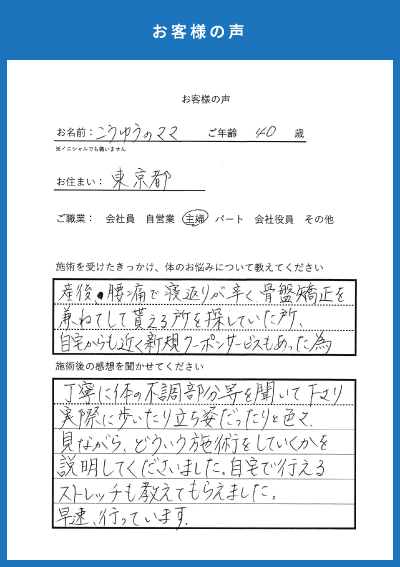 お客様の声
お客様の声
お名前：こうゆうのママ　ご年齢　40　歳
※イニシャルでも構いません
お住まい：東京都
ご職業：　会社員　自営業　主婦　パート　会社役員　その他
施術を受けたきっかけ、体のお悩みについて教えてください
産後、腰痛で寝返りが辛く骨盤矯正を
兼ねてして貰える所を探していた所、
自宅からも近く新規クーポンサービスもあった為
施術後の感想を聞かせてください
丁寧に体の不調部分等を聞いて下さり
実際に歩いたり立ち姿だったりと色々
見ながら、どういう施術をしていくかを
説明してくださいました。自宅で行える
ストレッチも教えてもらえました。
早速、行っています。